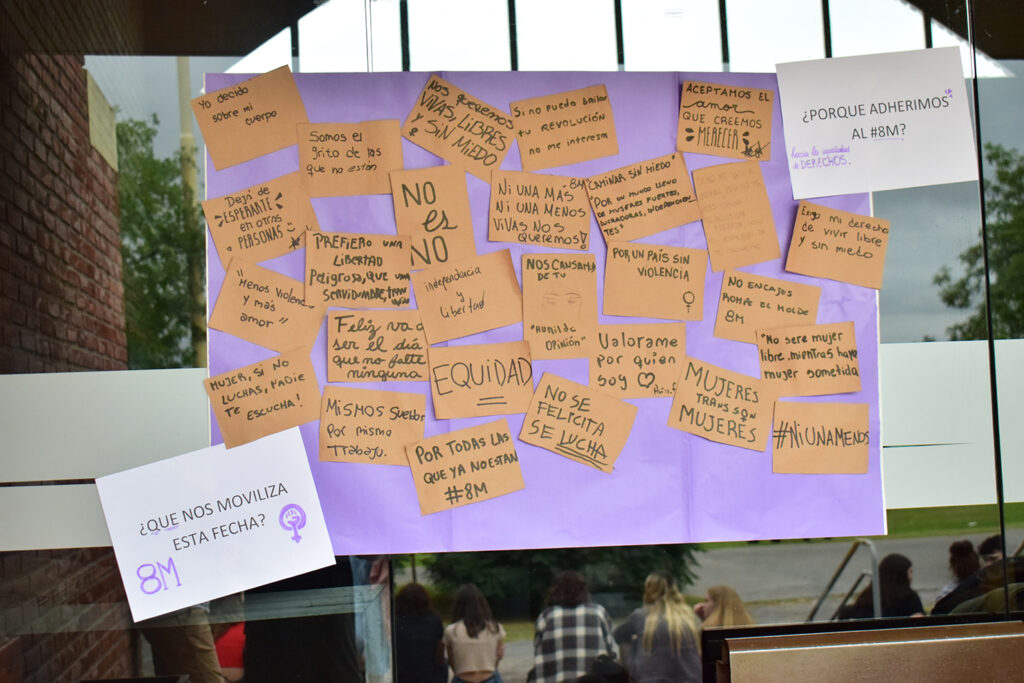 Yo decido
sobre mi
cuerpo
Somos el
grito de las
que no están
NOS QUEREMOS
VIVAS, LIBRES
Y SIN MIEDO
Si no puedo bailar
tu REVOLUCIÓN
no me interesa
ACEPTAMOS EL
amor
QUE CREEMOS
MERECER
¿PORQUE ADHERIMOS
AL #8M?
hacia la igualdad
de DERECHOS.
Dejá de
ESPERARTE
en otras
PERSONAS
NO
es
NO
NI UNA MÁS 8M
NI UNA MENOS
VIVAS NOS
QUEREMOS!
CAMINAR SIN MIEDO
"POR UN MUNDO LLENO
DE MUJERES FUERTES,
LUCHADORAS, INDEPENDIEN
TES"
Exijo mi derecho
de vivir libre
y sin miedo
PREFIERO UNA
LIBERTAD
Peligrosa, que una
SERVIDUMBRE TRAN
Menos violencia
y más
amor"
independencia
y
libertad
NOS CANSAMOS
DE TU
"HUMILDE
OPINIÓN"
POR UN PAÍS SIN
VIOLENCIA
NO ENCAJES
ROMPE EL MOLDE
8M
Feliz va a
ser el día
que no falte
ninguna
Valorame
por quien
soy
"No sere mujer
libre, mientras haya
mujer sometida
MUJER, SI NO
LUCHAS, NADIE
TE ESCUCHA!
EQUIDAD
NO SE
FELICITA
SE LUCHA
MUJERES
TRANS SON
MUJERES
MISMOS Sueldos
Por mismo
Trabajo.
POR TODAS LAS
QUE YA NO ESTAN
#8M
#NIUNAMENOS
¿QUE NOS MOVILIZA
ESTA FECHA?
8M